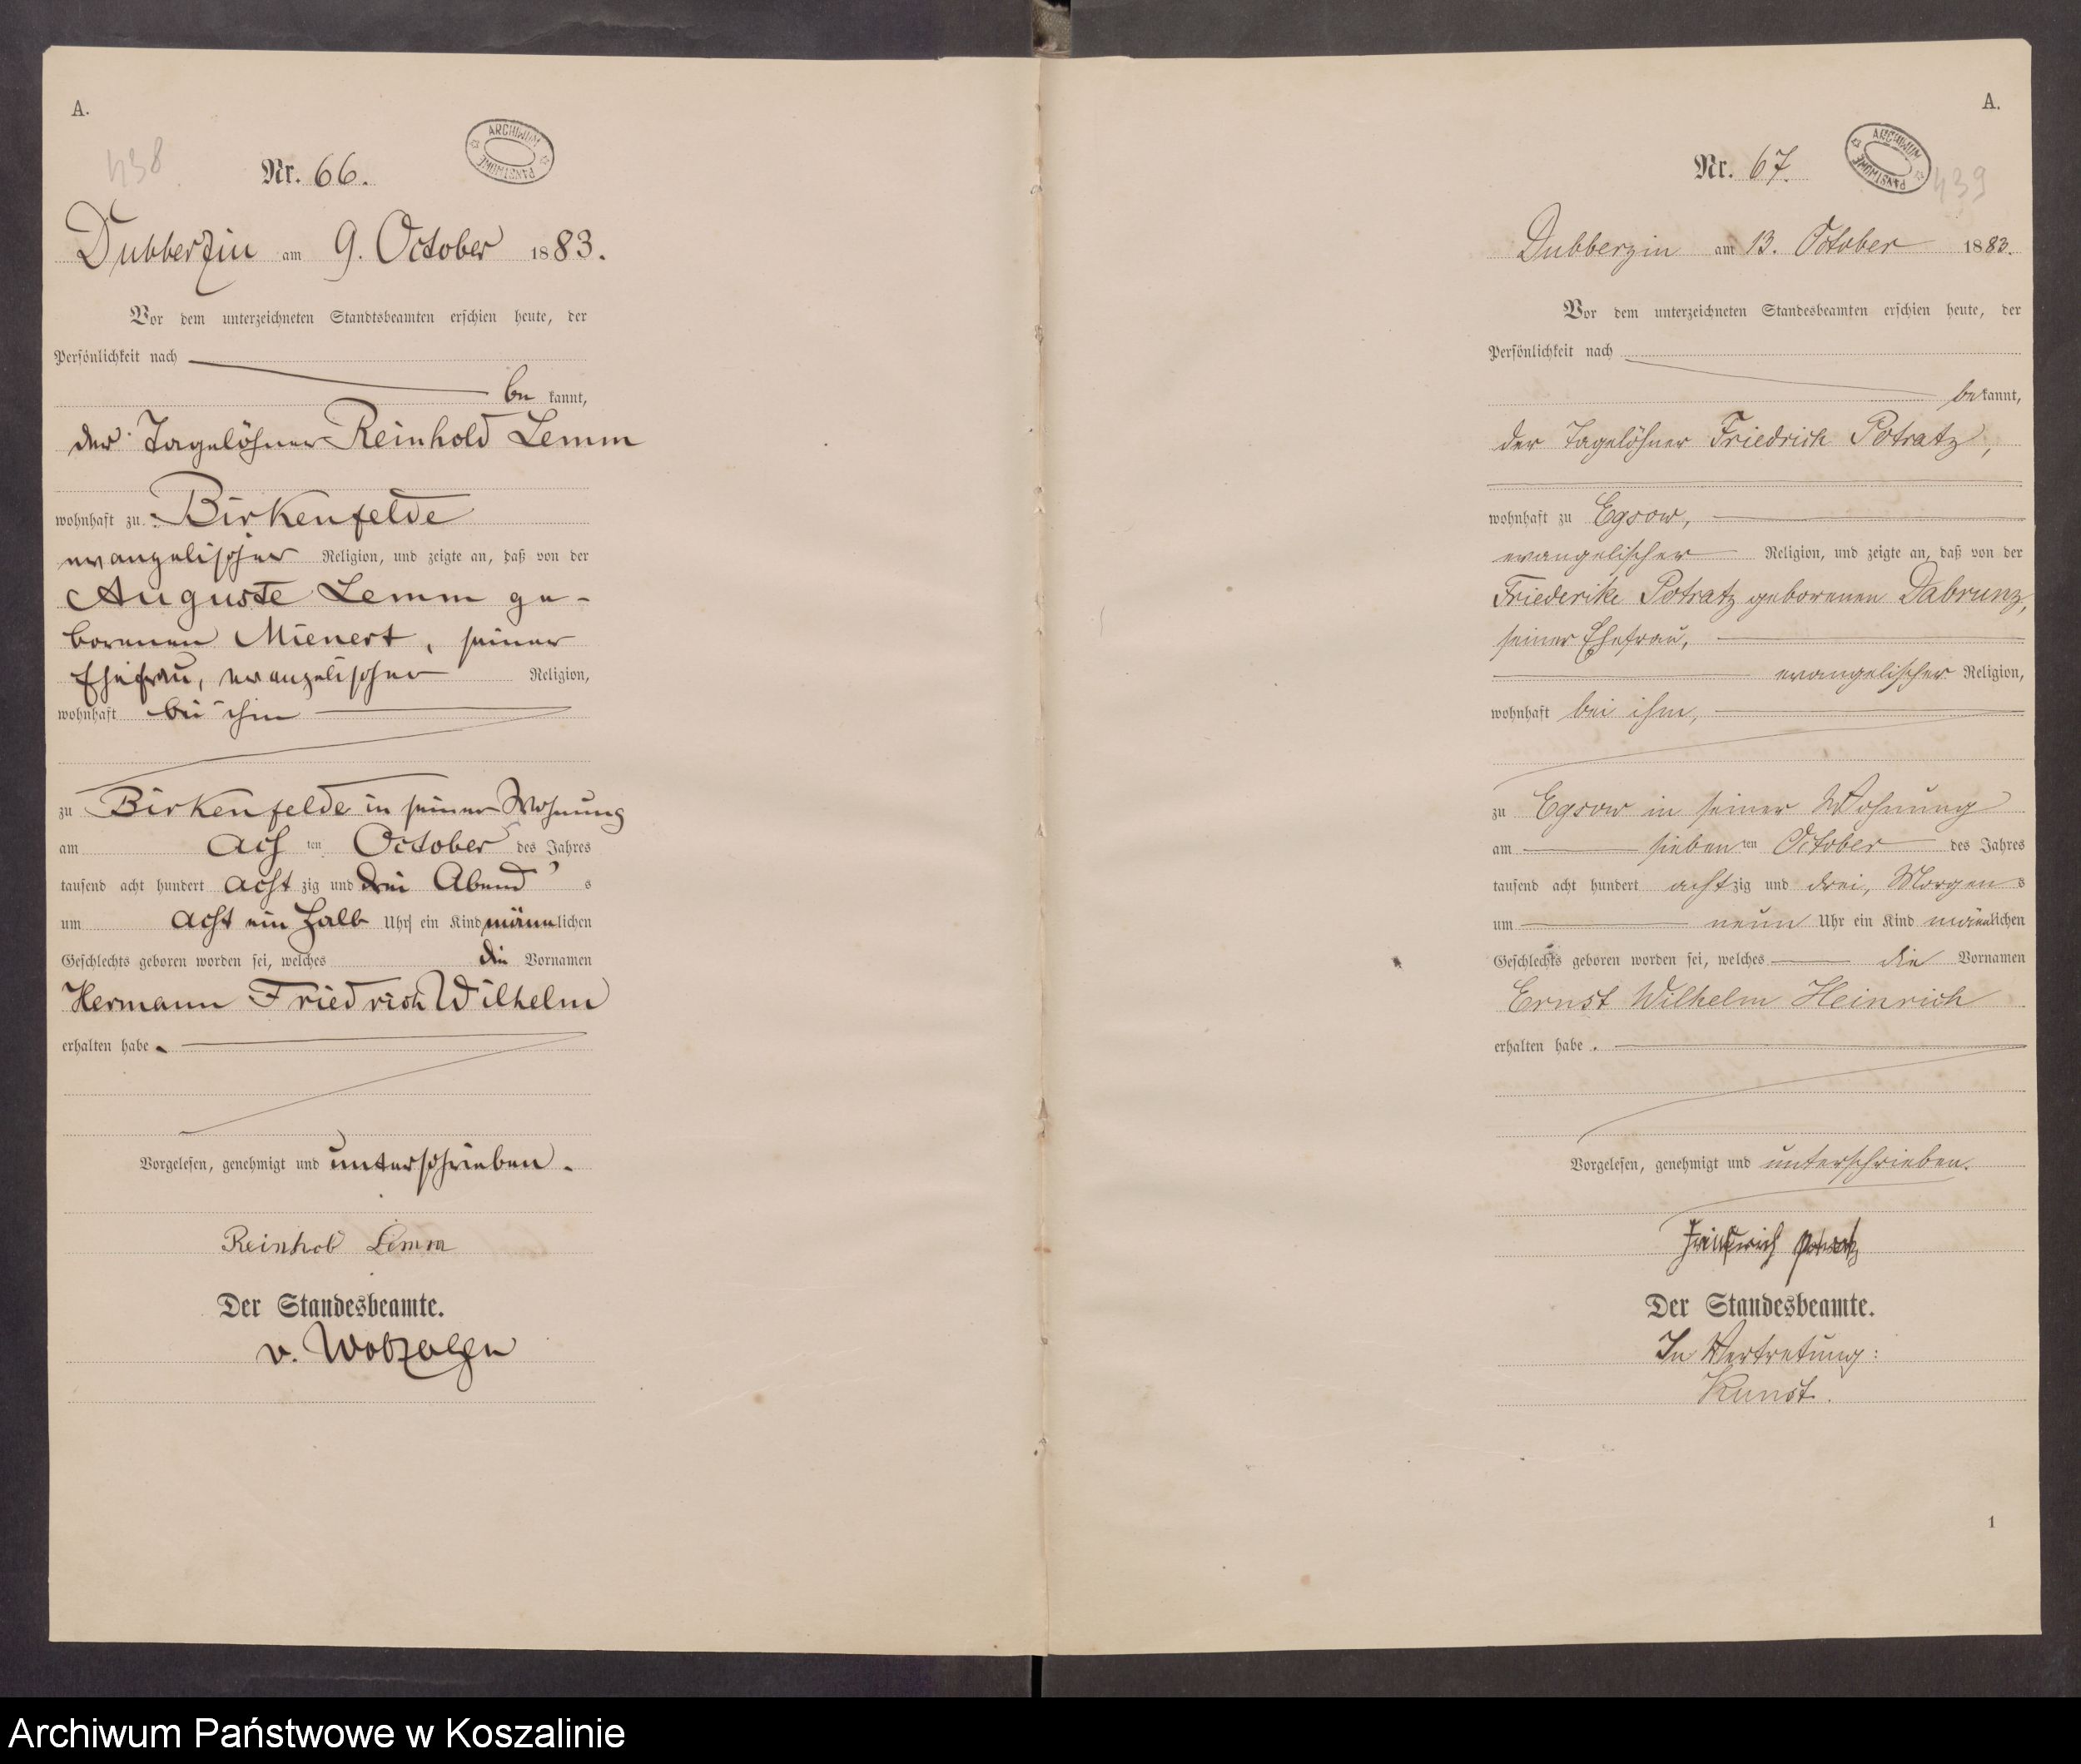 A.
438
Nr. 66.
ARCHIWUM PAŃSTWOWE
Dubberzin am 9. October 1883.
Vor dem unterzeichneten Standtsbeamten erschien heute, der
Persönlichkeit nach
be kannt,
der Tagelöhner Reinhold Lemm
wohnhaft zu Birkenfelde
evangelischer Religion, und zeigte an, daß von der
Auguste Lemm ge-
borenen Mienert, seiner
Ehefrau, evangelischer Religion,
wohnhaft bei ihm
zu Birkenfelde in seiner Wohnung
am ach ten October des Jahres
tausend acht hundert acht zig und drei Abend s
um acht ein halb Uhr ein Kind männlichen
Geschlechts geboren worden sei, welches die Vornamen
Hermann Friedrich Wilhelm
erhalten habe.
Vorgelesen, genehmigt und unterschrieben.
Reinhold Lemm
Der Standesbeamte.
v.
A.
Nr. 67.
ARCHIWUM PAŃSTWOWE
439
Dubberzin am 13. October 1883.
Vor dem unterzeichneten Standesbeamten erschien heute, der
Persönlichkeit nach
bekannt,
der Tagelöhner Friedrich Potratz,
wohnhaft zu Egsow,
evangelischer Religion, und zeigte an, daß von der
Friederike Potratz geborenen Dabrunz,
seiner Ehefrau,
evangelischer Religion,
wohnhaft bei ihm,
zu Egsow in seiner Wohnung
am siebenten October des Jahres
tausend acht hundert achtzig und drei, Morgens
um neun Uhr ein Kind männlichen
Geschlechts geboren worden sei, welches die Vornamen
Ernst Wilhelm Heinrich
erhalten habe.
Vorgelesen, genehmigt und unterschrieben.
Friedrich Potratz
Der Standesbeamte.
In Vertretung:
Kunst.
1
Archiwum Państwowe w Koszalinie